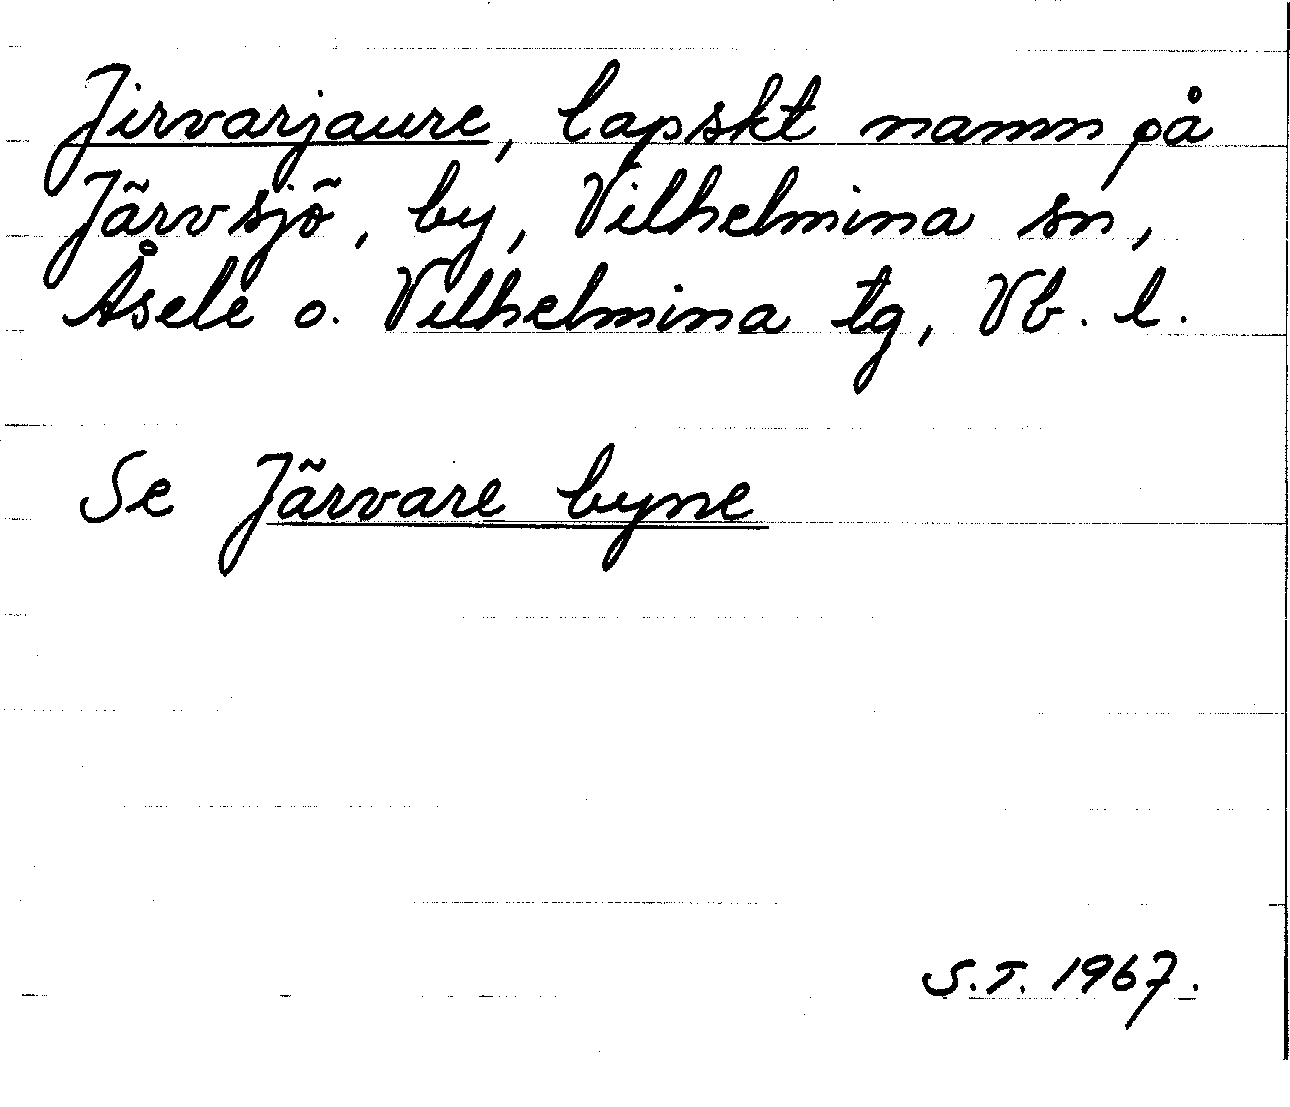 Jirvarjaure, lapskt namn på
Järvsjö, by, Vilhelmina sn,
Åsele o. Vilhelmina tg, Vb. l.
Se Järvare byne
S.T. 1967.